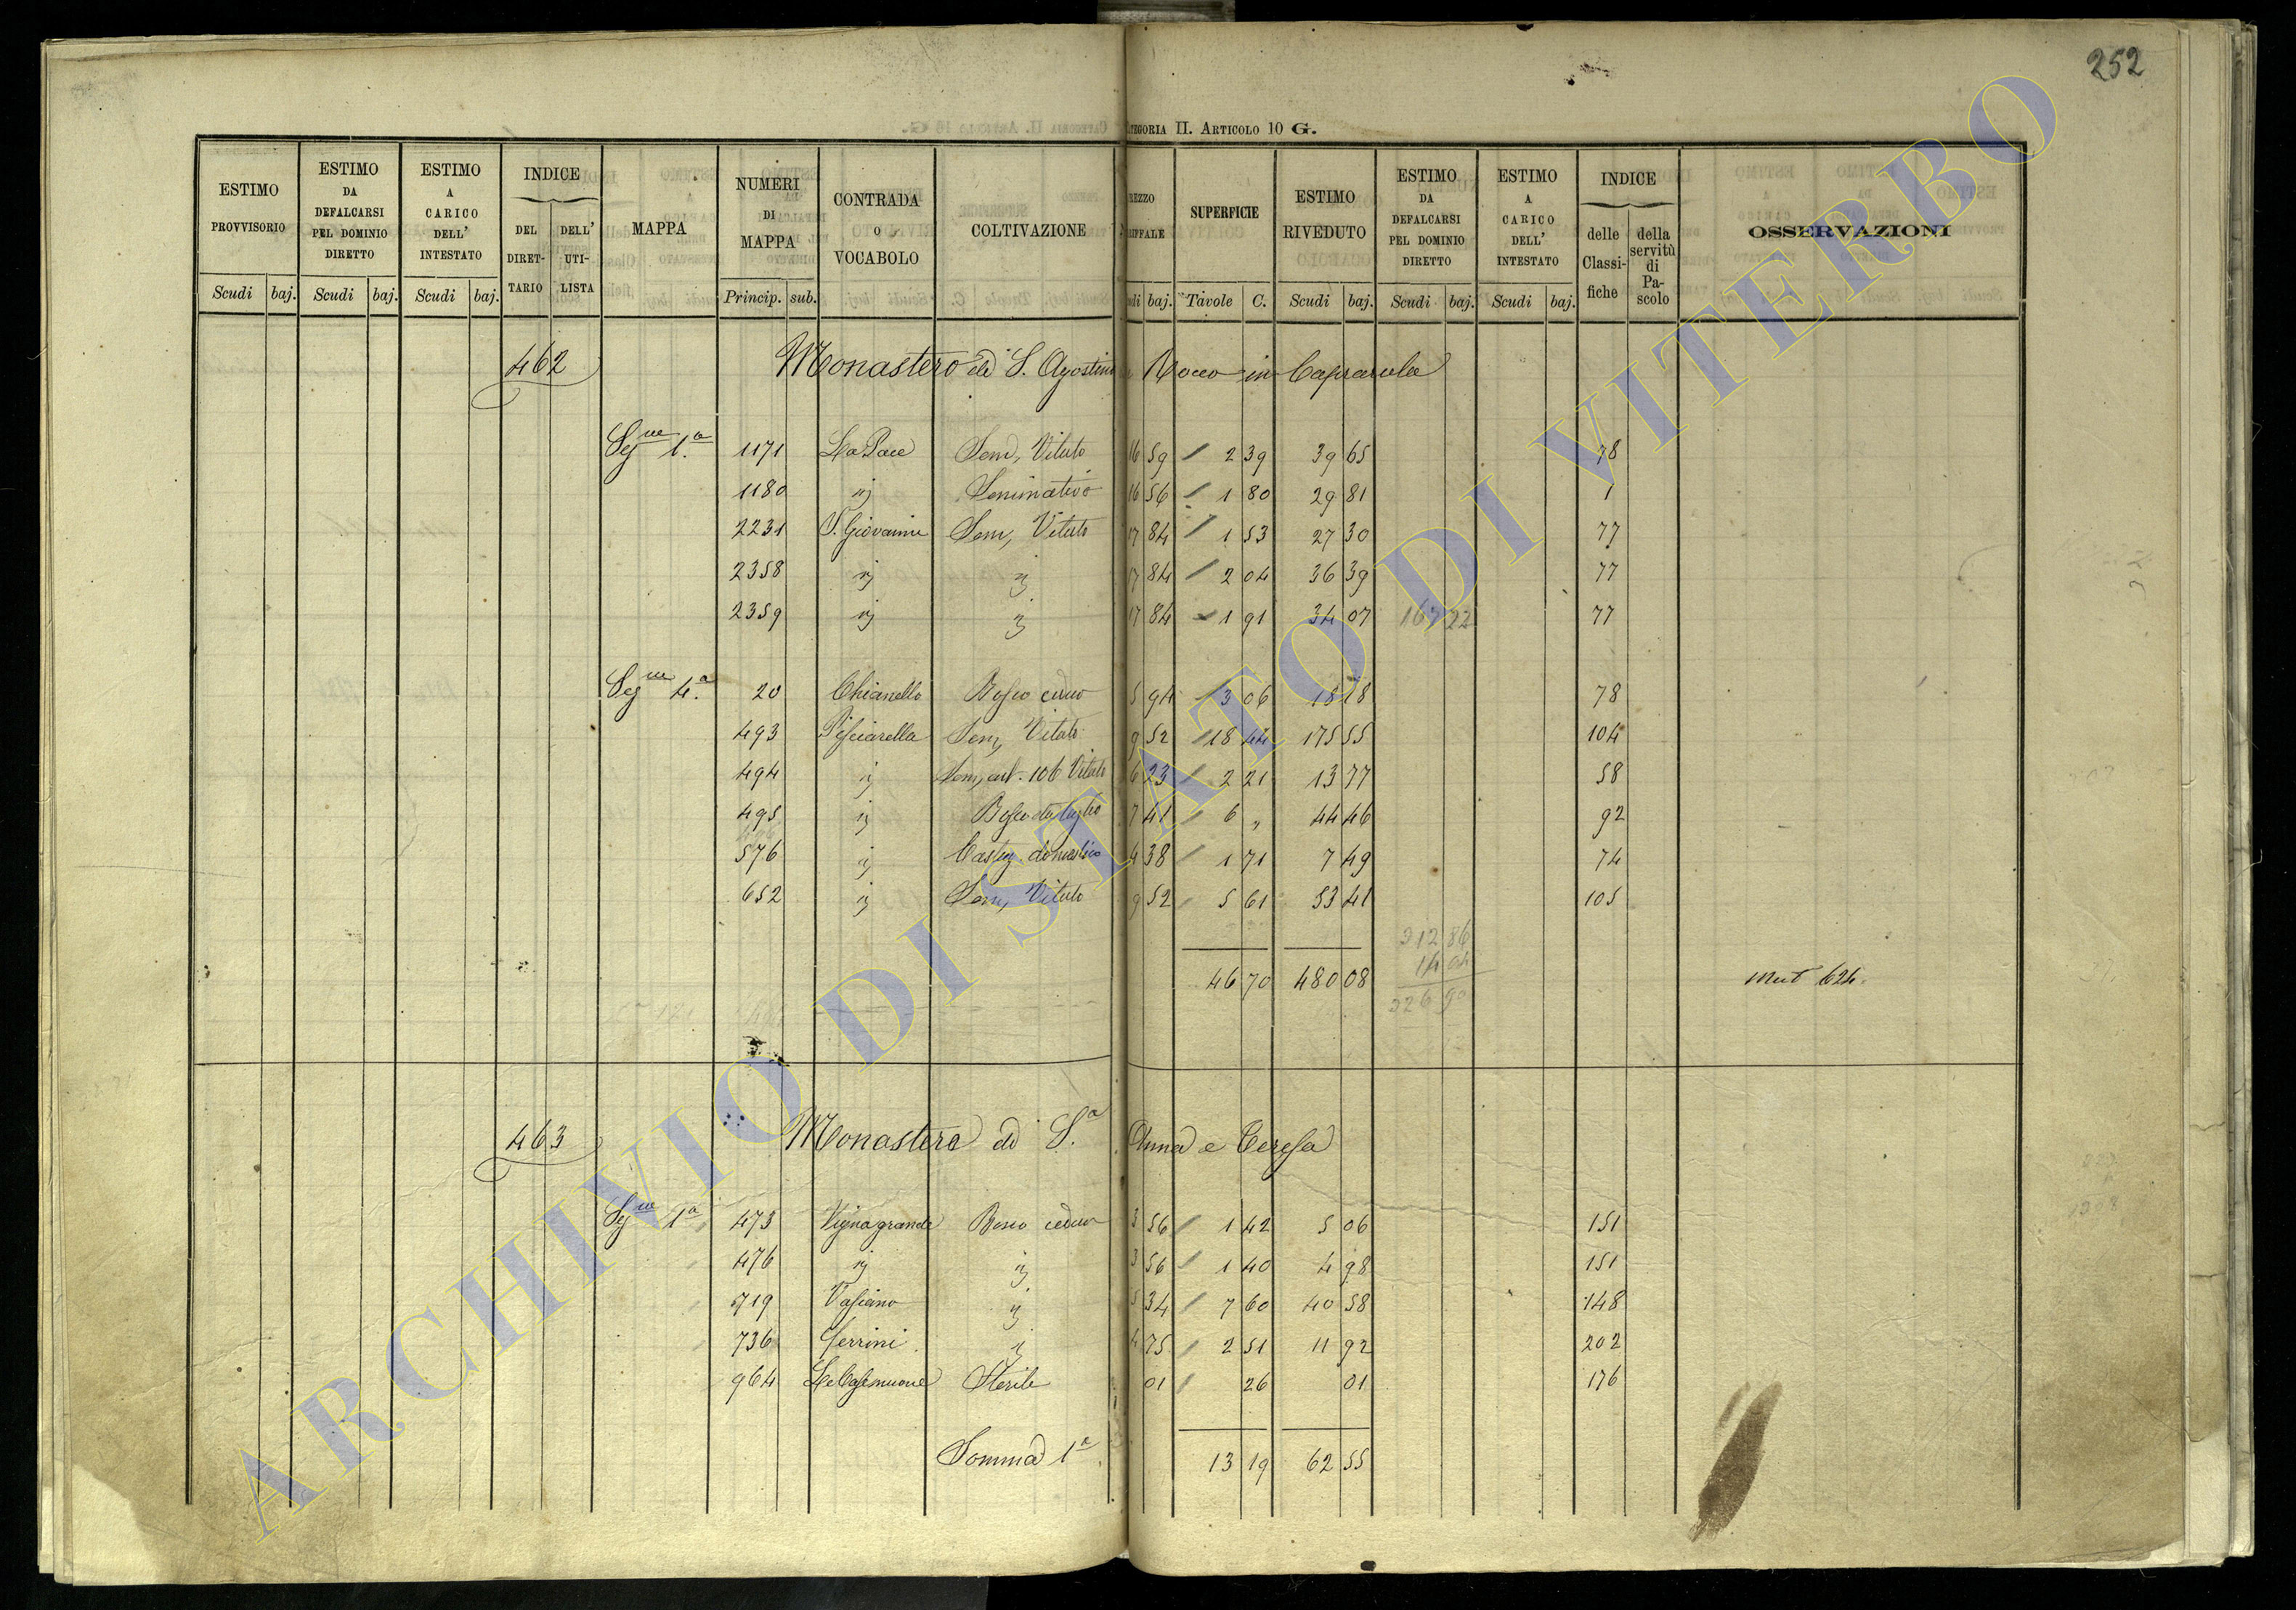 252
CATEGORIA II. ARTICOLO 10 G.
ESTIMO PROVVISORIO | ESTIMO DA DEFALCARSI PEL DOMINIO DIRETTO | ESTIMO A CARICO DELL' INTESTATO | INDICE DEL DIRETTARIO DELL' UTILISTA | MAPPA | NUMERI DI MAPPA | CONTRADA O VOCABOLO | COLTIVAZIONE | SUPERFICIE | ESTIMO RIVEDUTO | ESTIMO DA DEFALCARSI PEL DOMINIO DIRETTO | ESTIMO A CARICO DELL' INTESTATO | INDICE delle Classifiche della servitù di Pascolo | OSSERVAZIONI
Scudi baj. Scudi baj. Scudi baj. Princip. sub. baj. Tavole C. Scudi baj. Scudi baj. Scudi baj.
462 Monastero di S. Agostino Rocco in Caprarola
Segne 1.a 1171 La Pace Sem, Vitato 16 59 2 39 39 65 78
1180 ij Seminativo 16 56 1 80 29 81 1
2231 S. Giovanni Sem, Vitato 17 84 1 53 27 30 77
2358 ij ij 17 84 2 04 36 39 77
2359 ij ij 17 84 1 91 34 07 167 22 77
Segne 4.a 20 Chianello Bosco ceduo 5 94 3 06 18 18 78
493 Pisciarella Sem, Vitato 9 52 18 44 175 55 104
494 ij Sem, 106 Vitato 6 23 2 21 13 77 58
495 ij Bosco da taglio 7 41 6 " 44 46 92
576 ij Castag. domestico 4 38 1 71 7 49 74
652 ij Sem, Vitato 9 52 5 61 53 41 105
312 86
14 04
46 70 480 08 326 90 Mut 624.
463 Monastero di S.a Anna e Teresa
Segne 1a 473 Vigna grande Bosco ceduo 3 56 1 42 5 06 151
476 ij ij 3 56 1 40 4 98 151
719 Vasciano ij 5 34 7 60 40 58 148
736 Cerrini ij 4 75 2 51 11 92 202
964 Le Case nuove Sterile 01 26 01 176
Somma 1a 13 19 62 55
ARCHIVIO DI STATO DI VITERBO